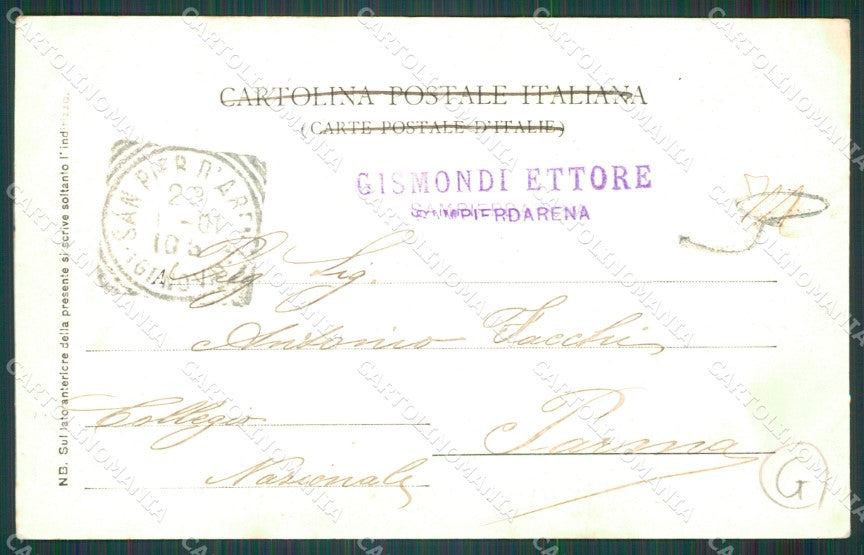 CARTOLINA POSTALE ITALIANA
(CARTE POSTALE D'ITALIE)
GISMONDI ETTORE
SAMPIERDARENA
SAN PIER D'ARENA
23
10 S
(GENOVA)
NB. Sul lato anteriore della presente si scrive soltanto l'indirizzo.
Sig.
Antonio Facchi
Collegio
Parma
Nazionale
G
CARTOLINOMANIA